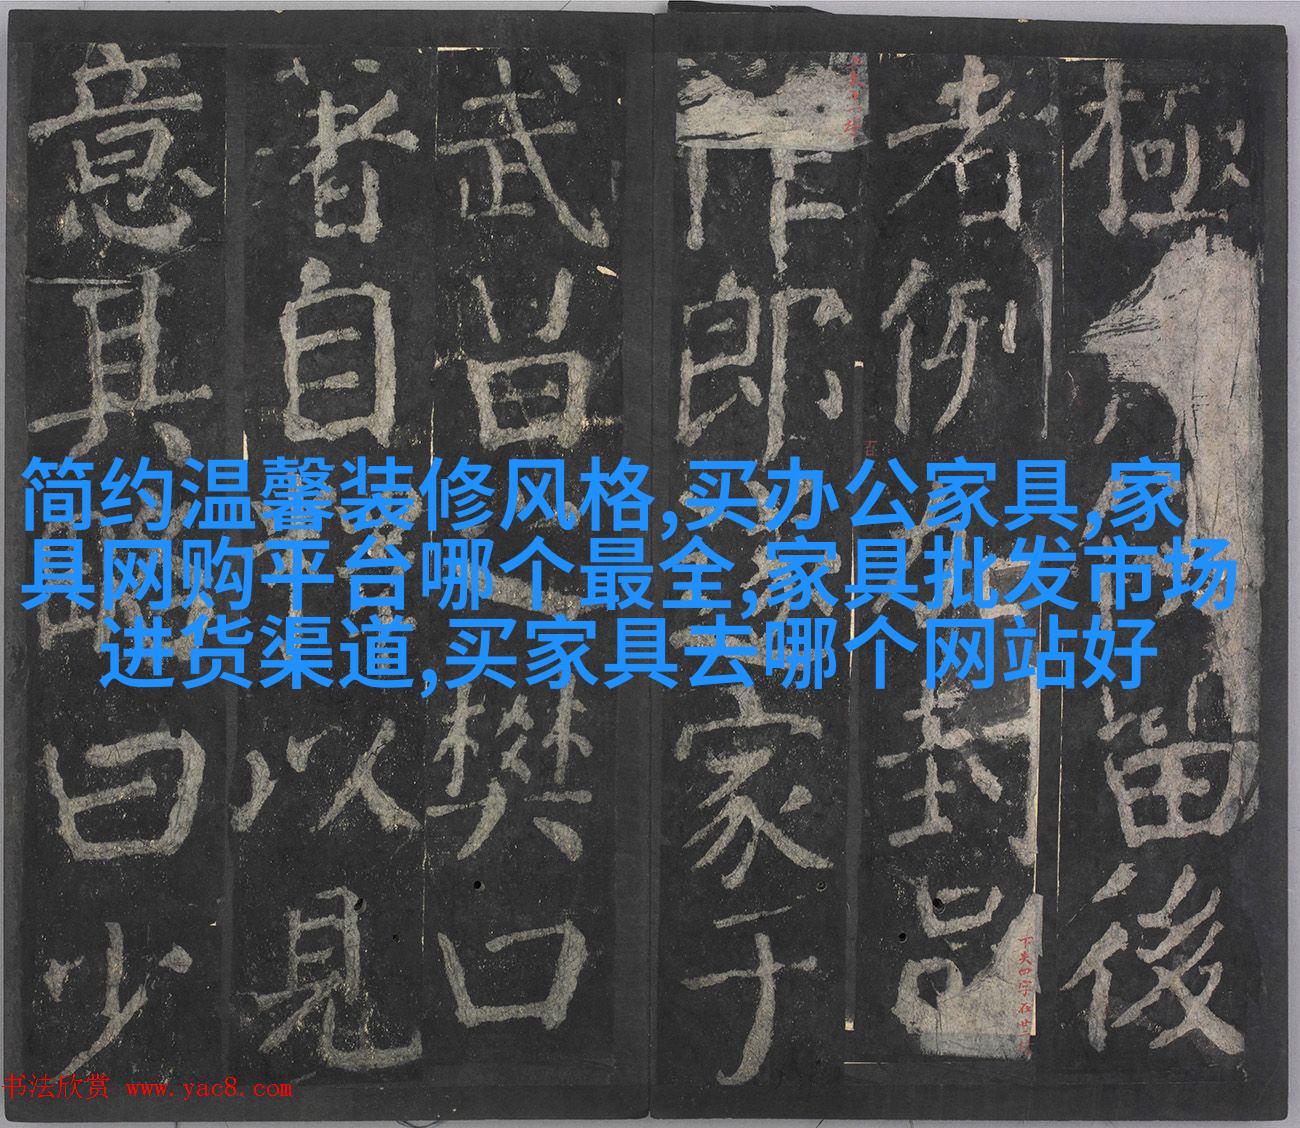 简约温馨装修风格,买办公家具,家
具网购平台哪个最全,家具批发市场
进货渠道,买家具去哪个网站好
極留後
者例加封
作郎家于
武昌之樊口
著自釋以見
意其略曰少
下失四字在廿
书法欣赏 www.yac8.com